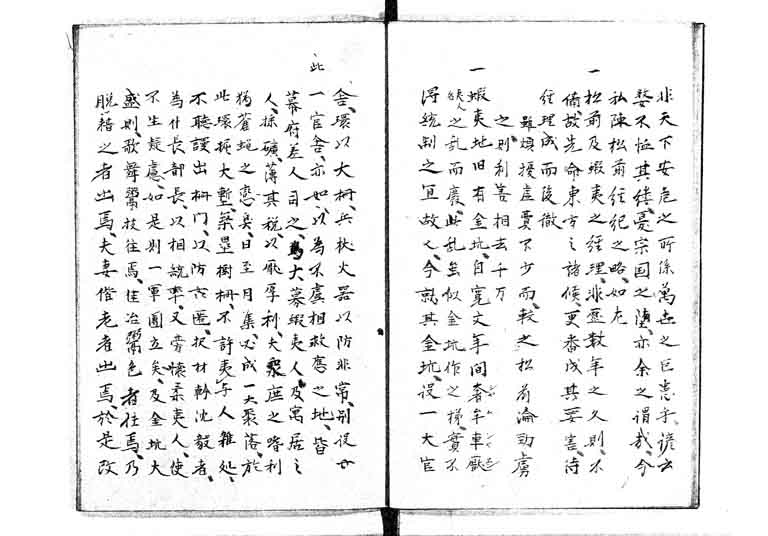 非天下安危之所係萬世之巨患乎、諺云
婺不恤其緯、憂宗国之隕、亦余之謂哉、今
私陳松前経紀之略、如左
一 松前及蝦夷之経理、非歴数年之久則、不
備、故先命東方之諸侯、更番戍其要害、待
経理成而後徹
雖煩擾虚費不少而、較之松前淪劫虜
之、則利害相去千万
一 蝦夷地旧有金坑、自寛文年間奢牟車厭
之乱而廃、此乱虽似金坑作之梯、實不
得統制之宜故也、今就其金坑、設一大官
舎、環以大柵、兵杖火器以防非常、別設
此一官舎、亦如、以為不虞相救應之地、皆
幕府差人司之、大募蝦夷人及寓居之
人、採礦、薄其税、以厭厚利、大衆庶之嗜利
猶雀蜆之恋臭、日至月集、以成一大聚落、於
此環掘大塹、築塁樹柵、不許夷与人雜処、
不聴謾出柵門、以防亡匿、択材幹沈毅者、
為什長部長、以相統率、又旁懐柔夷人、使
不生疑慮、如是則一軍團立矣、及金坑大
盛則、歌舞鬻技往焉、佳冶鬻色者往焉、乃
脱籍之者出焉、夫妻偕老者出焉、於是改